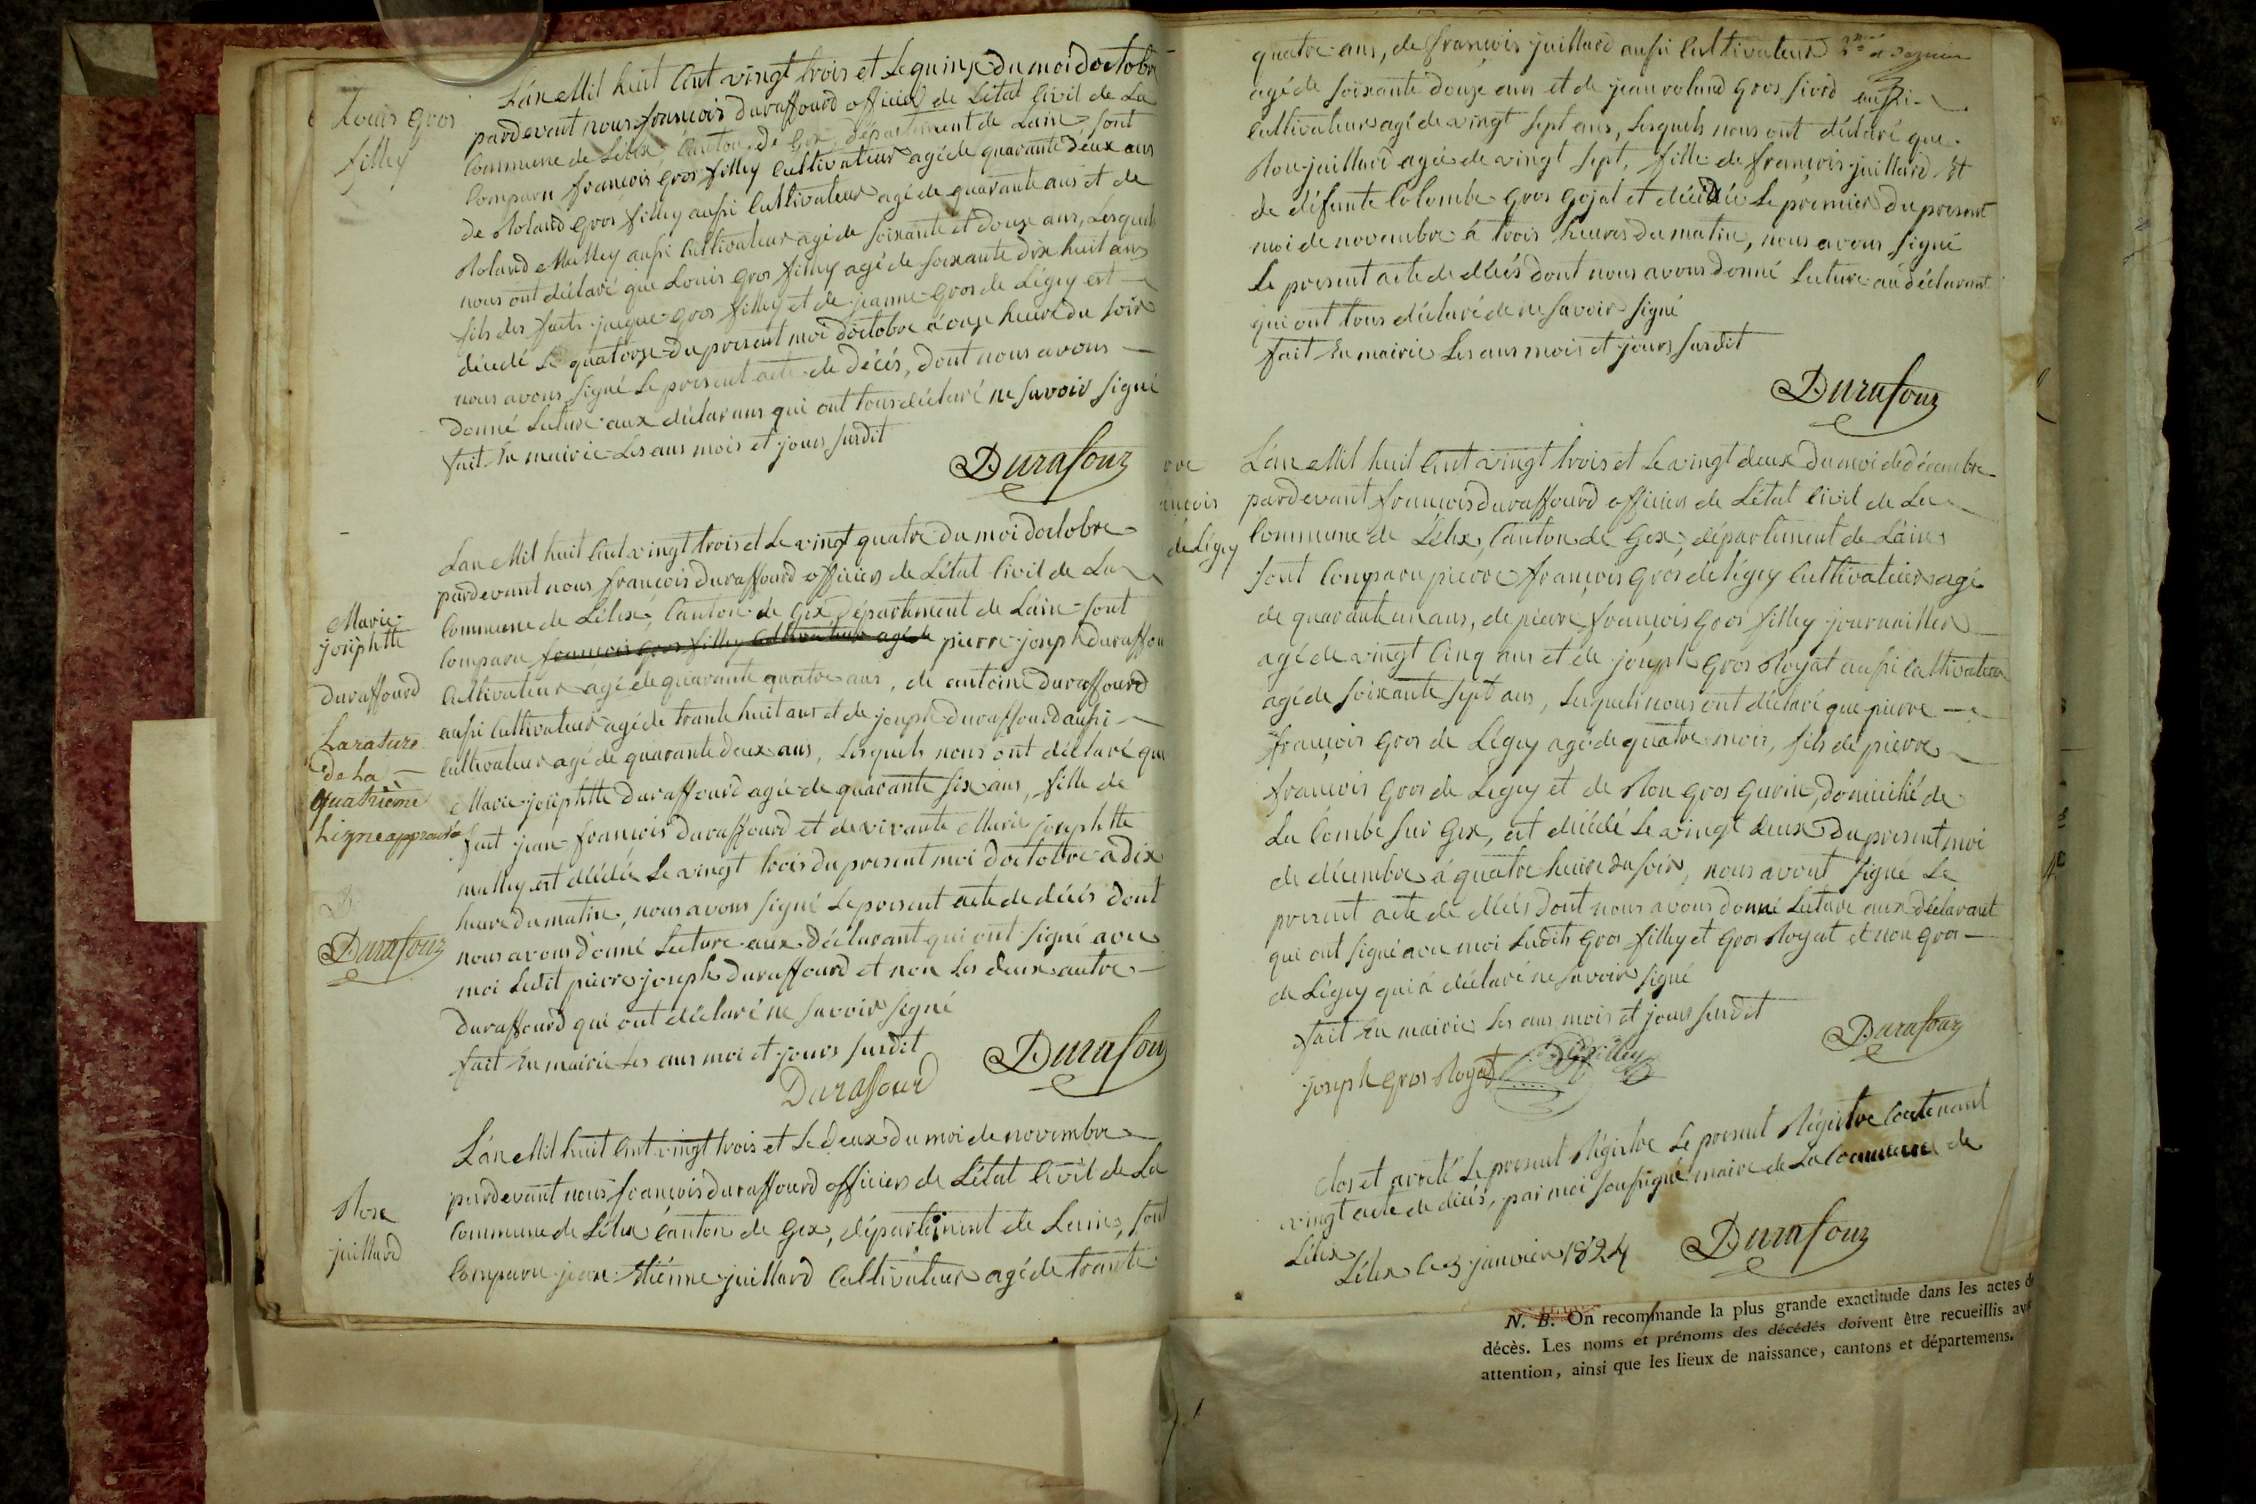 Louis Gros
filley
L'an Mil huit Cent vingt trois et Le quinze du moi doctobre
pardevant nous françois duraffourd officier de L'état Civil de La
Commune de Lélex, Canton de Gex, département de Lain, sont
Comparu françois Gros filley Cultivateur agé de quarante deux ans
de Roland Gros filley aussi Cultivateur agé de quarante ans et de
Roland Mulley aussi Cultivateur agé de soixante et douze ans, Lesquels
nous ont déclaré que Louis Gros filley agé de soixante dix huit ans
fils des faits jacque Gros filley et de jeanne Gros de Légey est
décédé Le quatorze du present moi doctobre à onze heure du soir
nous avons signé Le present acte de décés, dont nous avons
donné Lecture aux déclarans qui ont tous déclaré ne savoir signé
fait En mairie Les ans mois et jours susdit
Durafour
Marie
josephtte
Duraffourd
La rature
de La
quatrième
Ligne approuvée
Durafour
L'an Mil huit Cent vingt trois et Le vingt quatre du moi doctobre
pardevant nous françois duraffourd officier de L'état Civil de La
Commune de Lélex, Canton de Gex département de Lain sont
Comparu françois Gros filley Cultivateur agé de pierre joseph duraffour
Cultivateur agé de quarante quatre ans, de antoine duraffourd
aussi Cultivateur agé de trante huit ans et de joseph duraffourd aussi
Cultivateur agé de quarante deux ans, Lesquels nous ont déclaré que
Marie josephtte duraffourd agée de quarante six ans, fille de
fait jean françois duraffourd et de vivante Marie josephtte
mulley est décédée Le vingt trois du present moi doctobre à dix
heure du matin, nous avons signé Le present acte de décés dont
nous avons donné Lecture aux déclarant qui ont signé avec
moi Ledit pierre joseph duraffourd et non Les deux autre
duraffourd qui ont déclaré ne savoir signé
fait En mairie Les ans moi et jours susdit
Duraffourd
Durafour
Rose
juillard
L'an Mil huit Cent vingt trois et Le deux du moi de novembre
pardevant nous françois duraffourd officier de L'état Civil de La
Commune de Lélex Canton de Gex, département de Lain, sont
Comparu jean Etiénne juillard Cultivateur agé de trante
quatre ans, de françois juillard aussi Cultivateur
agé de soixante douze ans et de jean roland Gros fivrd aussi
Cultivateur agé de vingt sept ans, Lesquels nous ont déclaré que
Rose juillard agée de vingt sept, fille de françois juillard Et
de défunte Colombe Gros Gojat et décédée Le premier du present
moi de novembre à trois heures du matin, nous avons signé
Le present acte de décés dont nous avons donné Lecture au déclarant
qui ont tous déclaré de ne savoir signé
fait En mairie Les ans mois et jours susdit
Durafour
rre
ançois
de Légey
L'an Mil huit Cent vingt trois et Le vingt deux du moi de décembre
pardevant françois duraffourd officier de L'état Civil de La
Commune de Lélex, Canton de Gex, département de Lain
sont Comparu pierre françois Gros de Légey Cultivateur agé
de quarante un ans, de pierre françois Gros filley journaillier
agé de vingt Cinq ans et de joseph Gros Royat aussi Cultivateur
agé de soixante sept ans, Lesquels nous ont déclaré que pierre
françois Gros de Légey agé de quatre mois, fils de pierre
françois Gros de Légey et de Rose Gros Gurin, domicilié de
La Combe sur Gex, est décédé Le vingt deux du present moi
de décembre à quatre heure du soir, nous avont signé Le
present acte de décés dont nous avons donné Lecture aux déclarant
qui ont signé avec moi Ledits Gros filley et Gros Royat et non Gros
de Légey qui à déclaré ne savoir signé
fait En mairie Les ans mois et jours susdit
Durafour
joseph Gros Royat
Clos et arrêté Le present Régistre Le present Régistre Contenant
vingt acte de décés, par moi soussigné maire de La Commune de
Lélex
Lélex le 3 janvier 1824
Durafour
N. B. On recommande la plus grande exactitude dans les actes de
décès. Les noms et prénoms des décédés doivent être recueillis ave
attention, ainsi que les lieux de naissance, cantons et départemens.